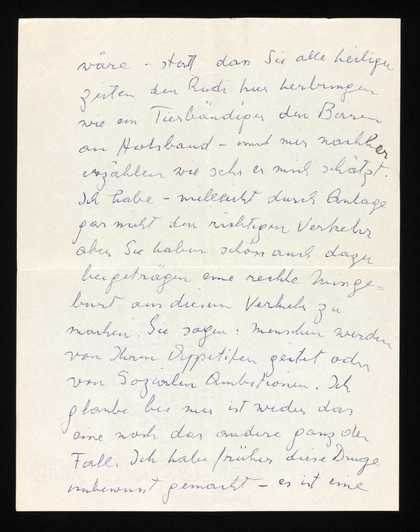 wäre – statt dass Sie alle heiligen
Zeiten den Rudi hier herbringen
wie ein Tierbändiger den Bären
am Halsband – und mir nachher
erzählen wie sehr er mich schätzt.
Ich habe – vielleicht durch Anlage
gar nicht den richtigen Verkehr
aber Sie haben schön auch dazu
beigetragen eine rechte Missge=
burt aus diesem Verkehr zu
machen. Sie sagen: Menschen werden
von Ihren Appetiten geleitet oder
von Sozialen Ambitionen. Ich
glaube bei mir ist weder das
eine noch das andere ganz der
Fall. Ich habe früher diese Dinge
unbewusst gemacht – es ist eine